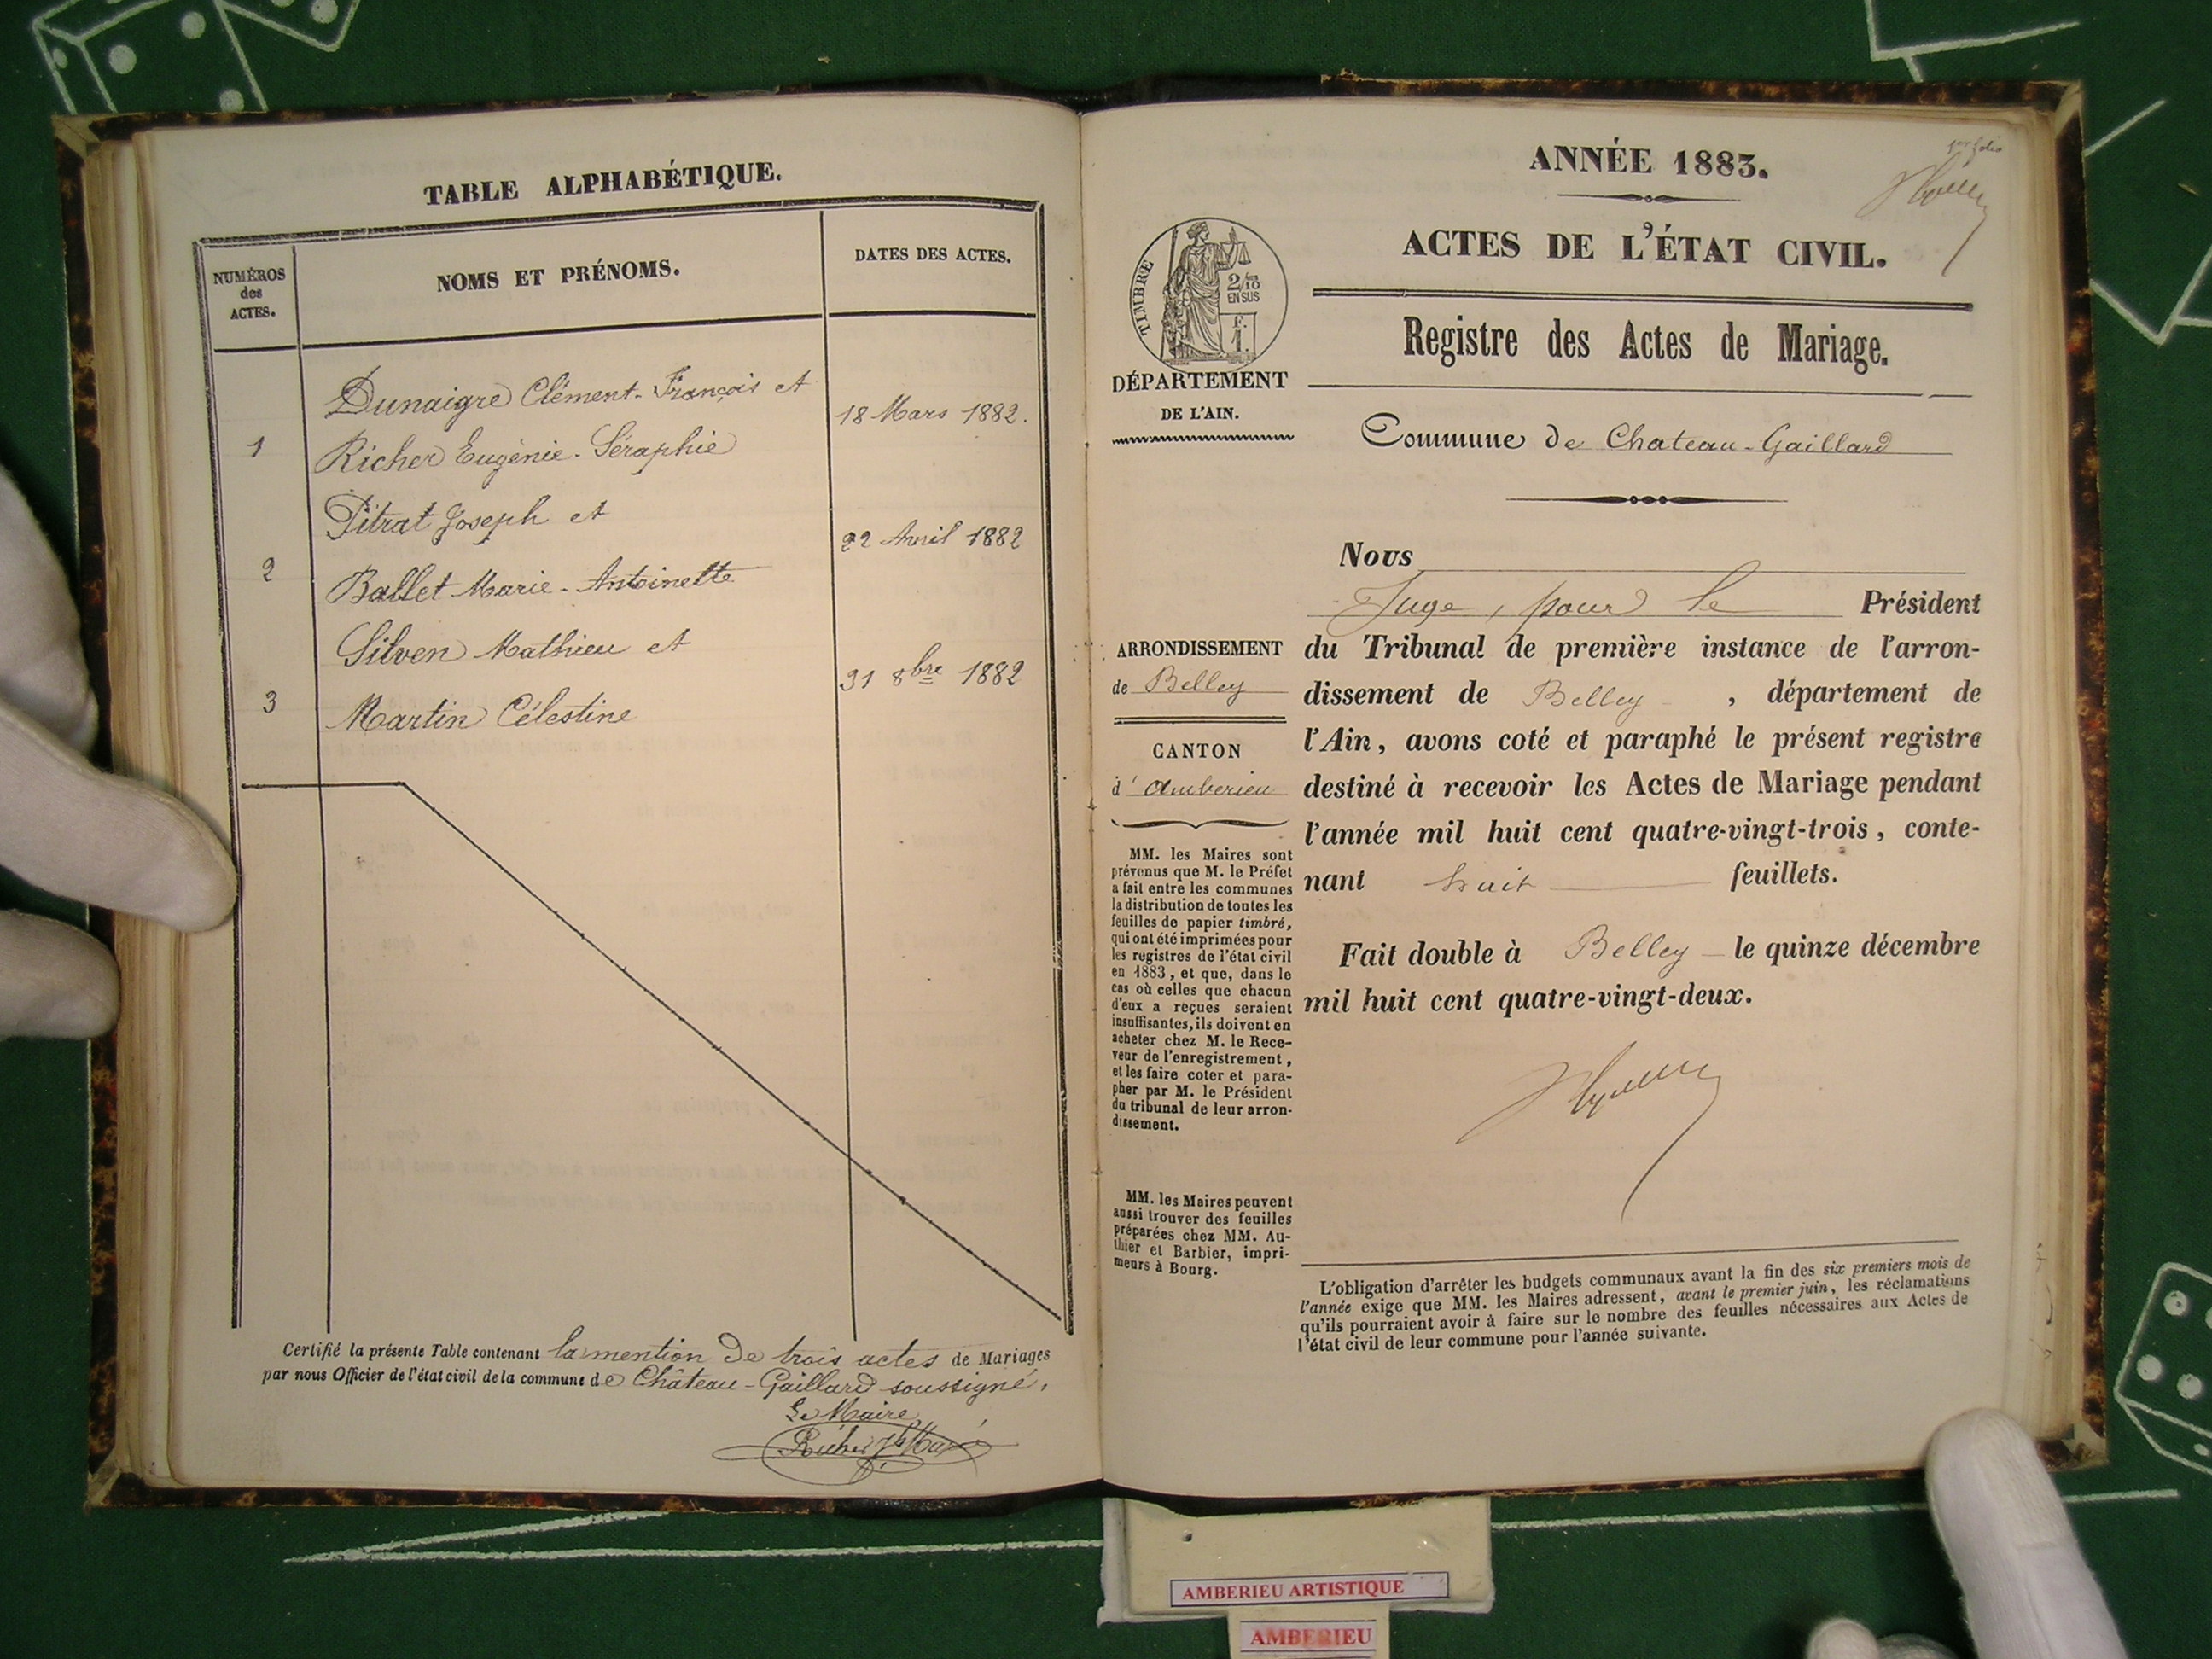 TABLE ALPHABÉTIQUE.
NUMÉROS
des
ACTES.
NOMS ET PRÉNOMS.
DATES DES ACTES.
Dunaigre Clément-François et
18 Mars 1882.
1
Richer Eugénie-Séraphie
Pitrat Joseph et
22 Avril 1882
2
Ballet Marie-Antoinette
Silven Mathieu et
31 8bre 1882
3
Martin Célestine
Certifié la présente Table contenant la mention de trois actes de Mariages
par nous Officier de l'état civil de la commune de Château-Gaillard soussigné,
Le Maire
1er folio
ANNÉE 1883.
ACTES DE L'ÉTAT CIVIL.
TIMBRE
2/10
EN SUS
F.
1.
Registre des Actes de Mariage.
DÉPARTEMENT
DE L'AIN.
Commune de Chateau-Gaillard
Nous
Juge, pour le Président
du Tribunal de première instance de l'arron-
dissement de Belley, département de
l'Ain, avons coté et paraphé le présent registre
destiné à recevoir les Actes de Mariage pendant
l'année mil huit cent quatre-vingt-trois, conte-
nant huit feuillets.
Fait double à Belley le quinze décembre
mil huit cent quatre-vingt-deux.
ARRONDISSEMENT
de Belley
CANTON
d'Amberieu
MM. les Maires sont
prévenus que M. le Préfet
a fait entre les communes
la distribution de toutes les
feuilles de papier timbré,
qui ont été imprimées pour
les registres de l'état civil
en 1883, et que, dans le
cas où celles que chacun
d'eux a reçues seraient
insuffisantes, ils doivent en
acheter chez M. le Rece-
veur de l'enregistrement,
et les faire coter et para-
pher par M. le Président
du tribunal de leur arron-
dissement.
MM. les Maires peuvent
aussi trouver des feuilles
préparées chez MM. Au-
thier et Barbier, impri-
meurs à Bourg.
L'obligation d'arrêter les budgets communaux avant la fin des six premiers mois de
l'année exige que MM. les Maires adressent, avant le premier juin, les réclamations
qu'ils pourraient avoir à faire sur le nombre des feuilles nécessaires aux Actes de
l'état civil de leur commune pour l'année suivante.
AMBERIEU ARTISTIQUE
AMBERIEU